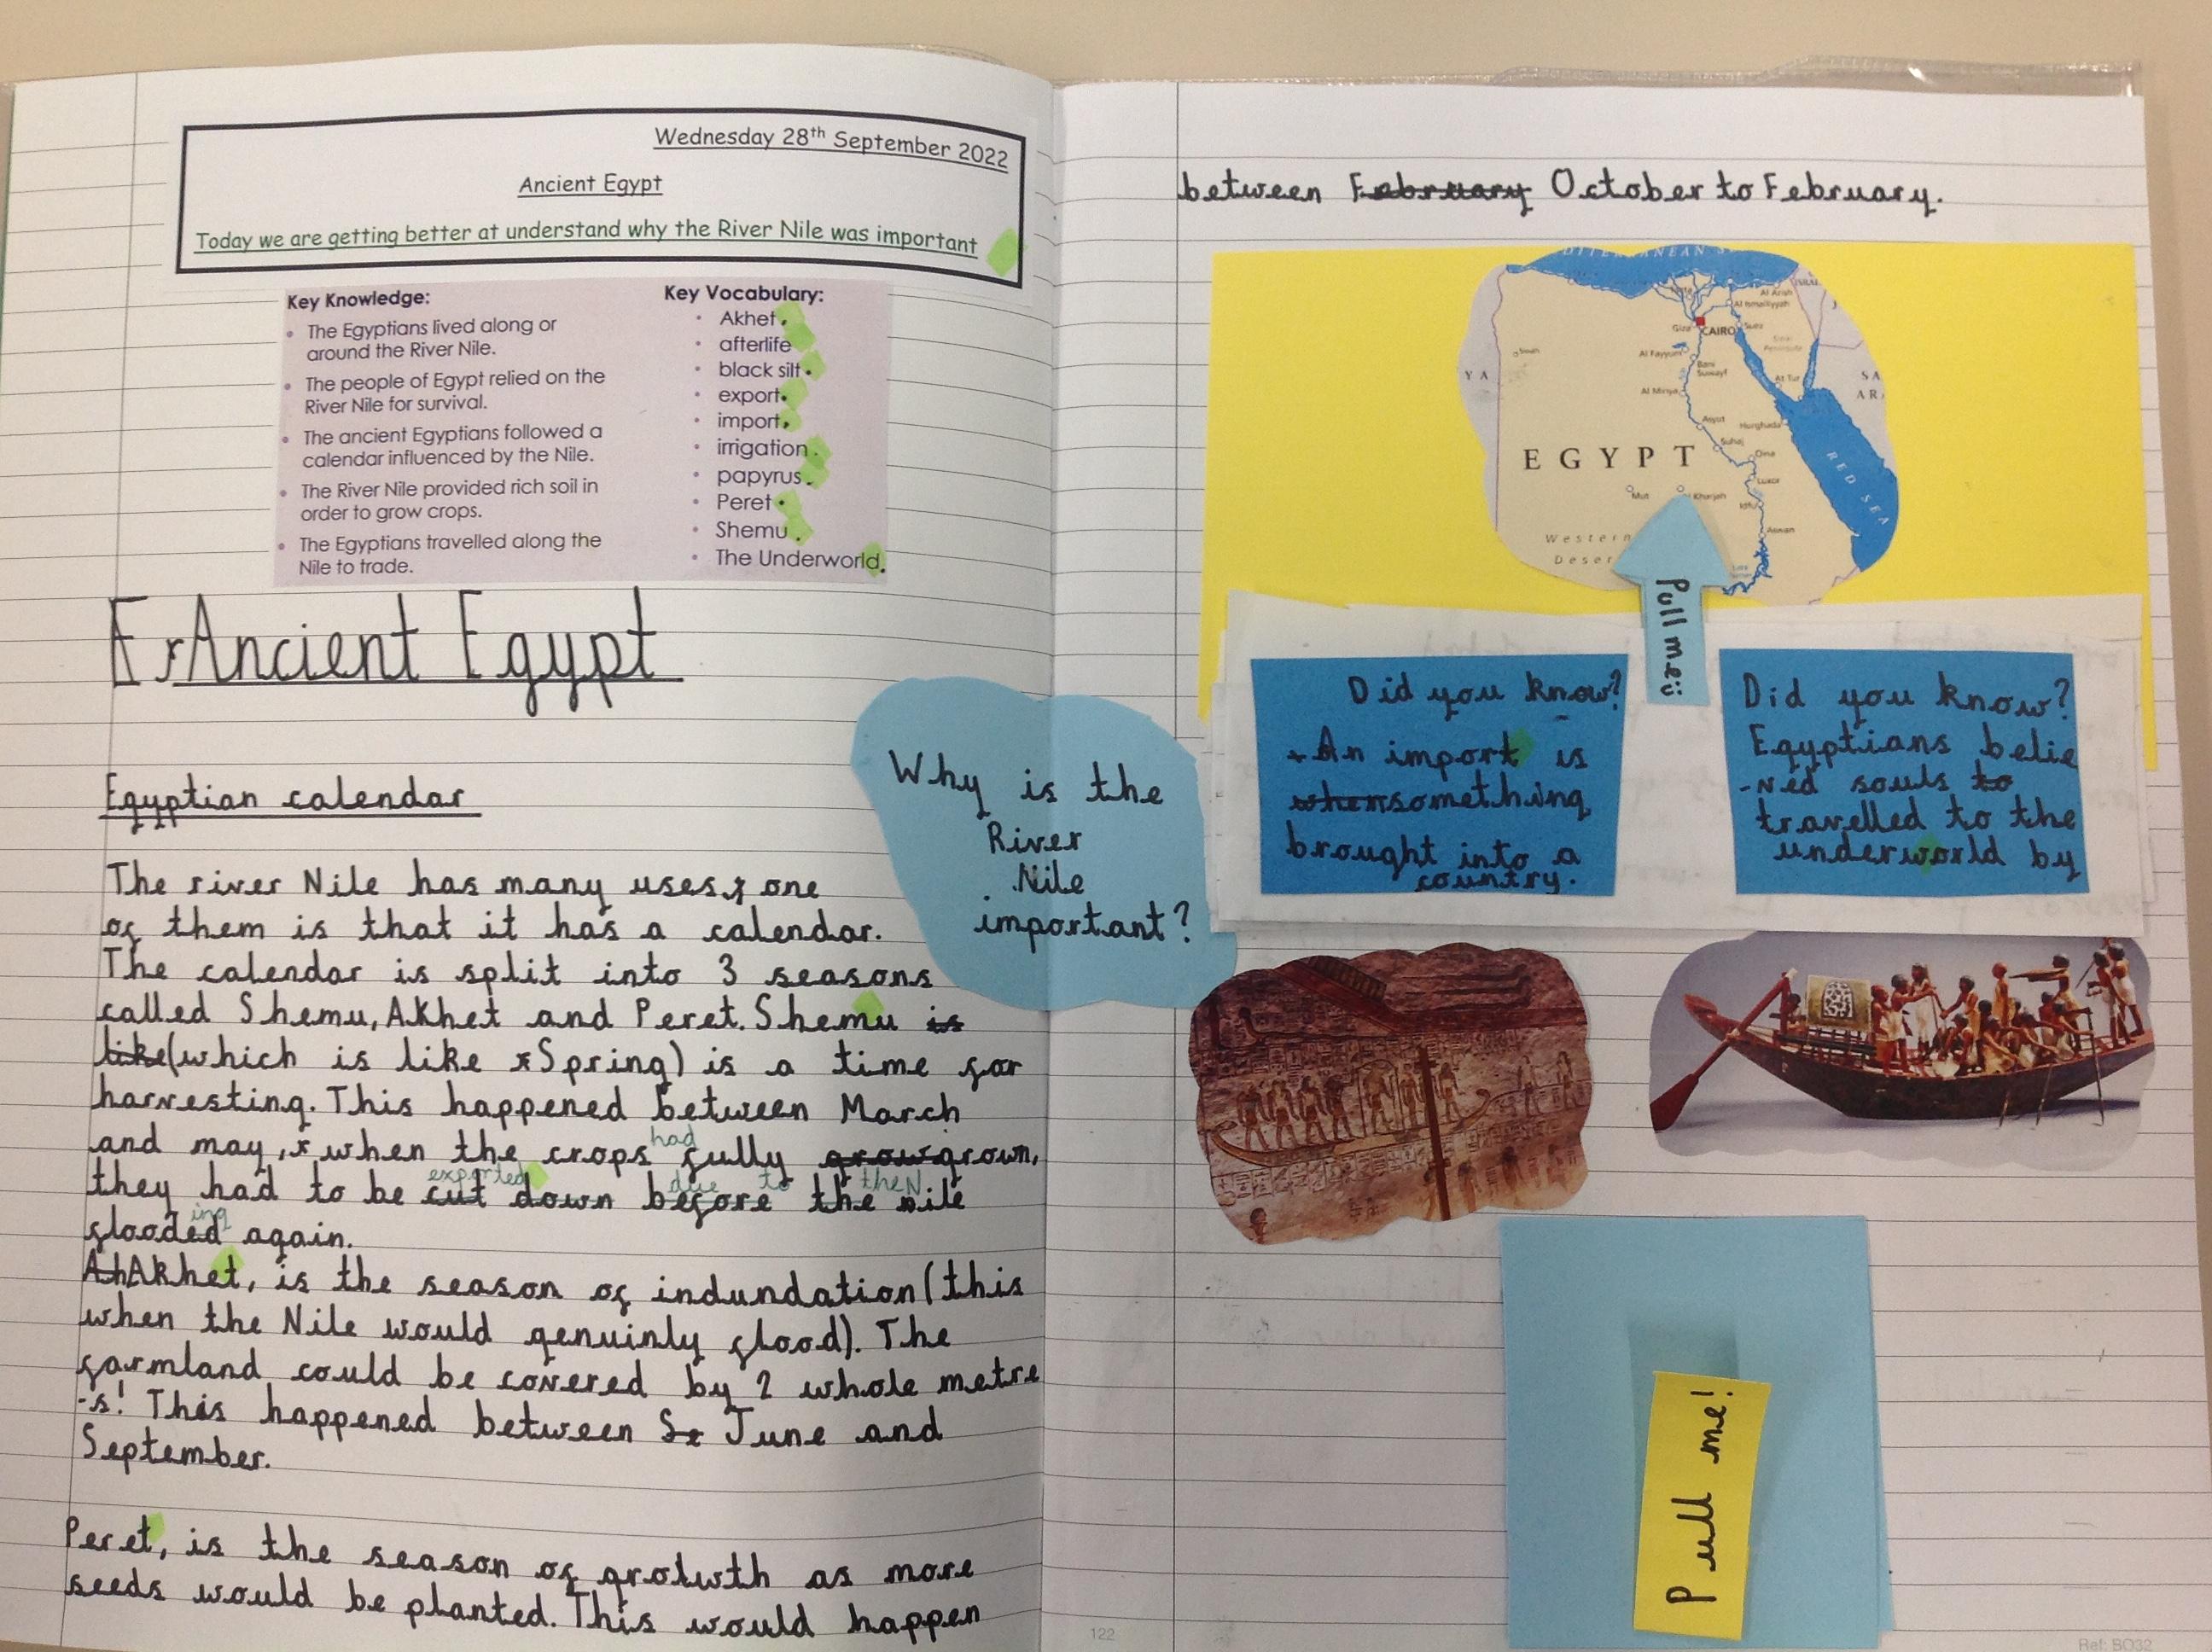 Wednesday 28th September 2022
Ancient Egypt
Today we are getting better at understand why the River Nile was important
Key Knowledge:
• The Egyptians lived along or
around the River Nile.
• The people of Egypt relied on the
River Nile for survival.
• The ancient Egyptians followed a
calendar influenced by the Nile.
• The River Nile provided rich soil in
order to grow crops.
• The Egyptians travelled along the
Nile to trade.
Key Vocabulary:
• Akhet
• afterlife
• black silt
• export
• import
• irrigation
• papyrus
• Peret
• Shemu
• The Underworld
Ancient Egypt
Egyptian calendar
The river Nile has many uses, one
of them is that it has a calendar.
The calendar is split into 3 seasons
called Shemu, Akhet and Peret. Shemu is
like (which is like Spring) is a time for
harvesting. This happened between March
and may, when the crops had fully grow grown,
they had to be cut exported down before due to the then nile
flooded ing again.
At Akhet, is the season of indundation (this
when the Nile would genuinly flood). The
farmland could be covered by 2 whole metre
-s! This happened between Se June and
September.
Peret, is the season of grotwth as more
seeds would be planted. This would happen
122
Why is the
River
Nile
important?
between February October to February.
MEDITERRANEAN S
ISRAEL
Al Arish
Al Ismailiyyah
Giza
CAIRO
Suez
Al Fayyum
Bani
Suwayf
Al Minya
At Tur
SA
AR
YA
Asyut
Hurghada
Suhaj
EGYPT
Qina
Luxor
Mut
Al Kharijah
Idfu
RED SEA
Aswan
Western
Desert
Pull me
Did you know?
An import is
when something
brought into a
country.
Did you know?
Egyptians belie
-ved souls to
travelled to the
underworld by
Pull me!
Ref: BO32